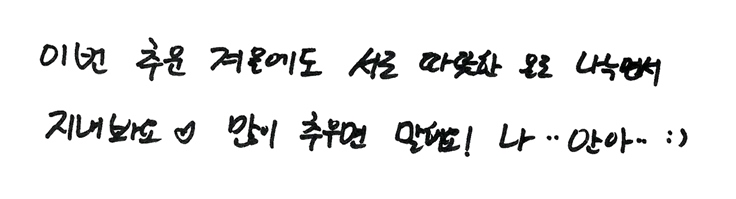 이번 추운 겨울에도 서로 따뜻한 온로 나누면서
지내봐요 ♡ 많이 추우면 말해요! 나‥안아‥ :)